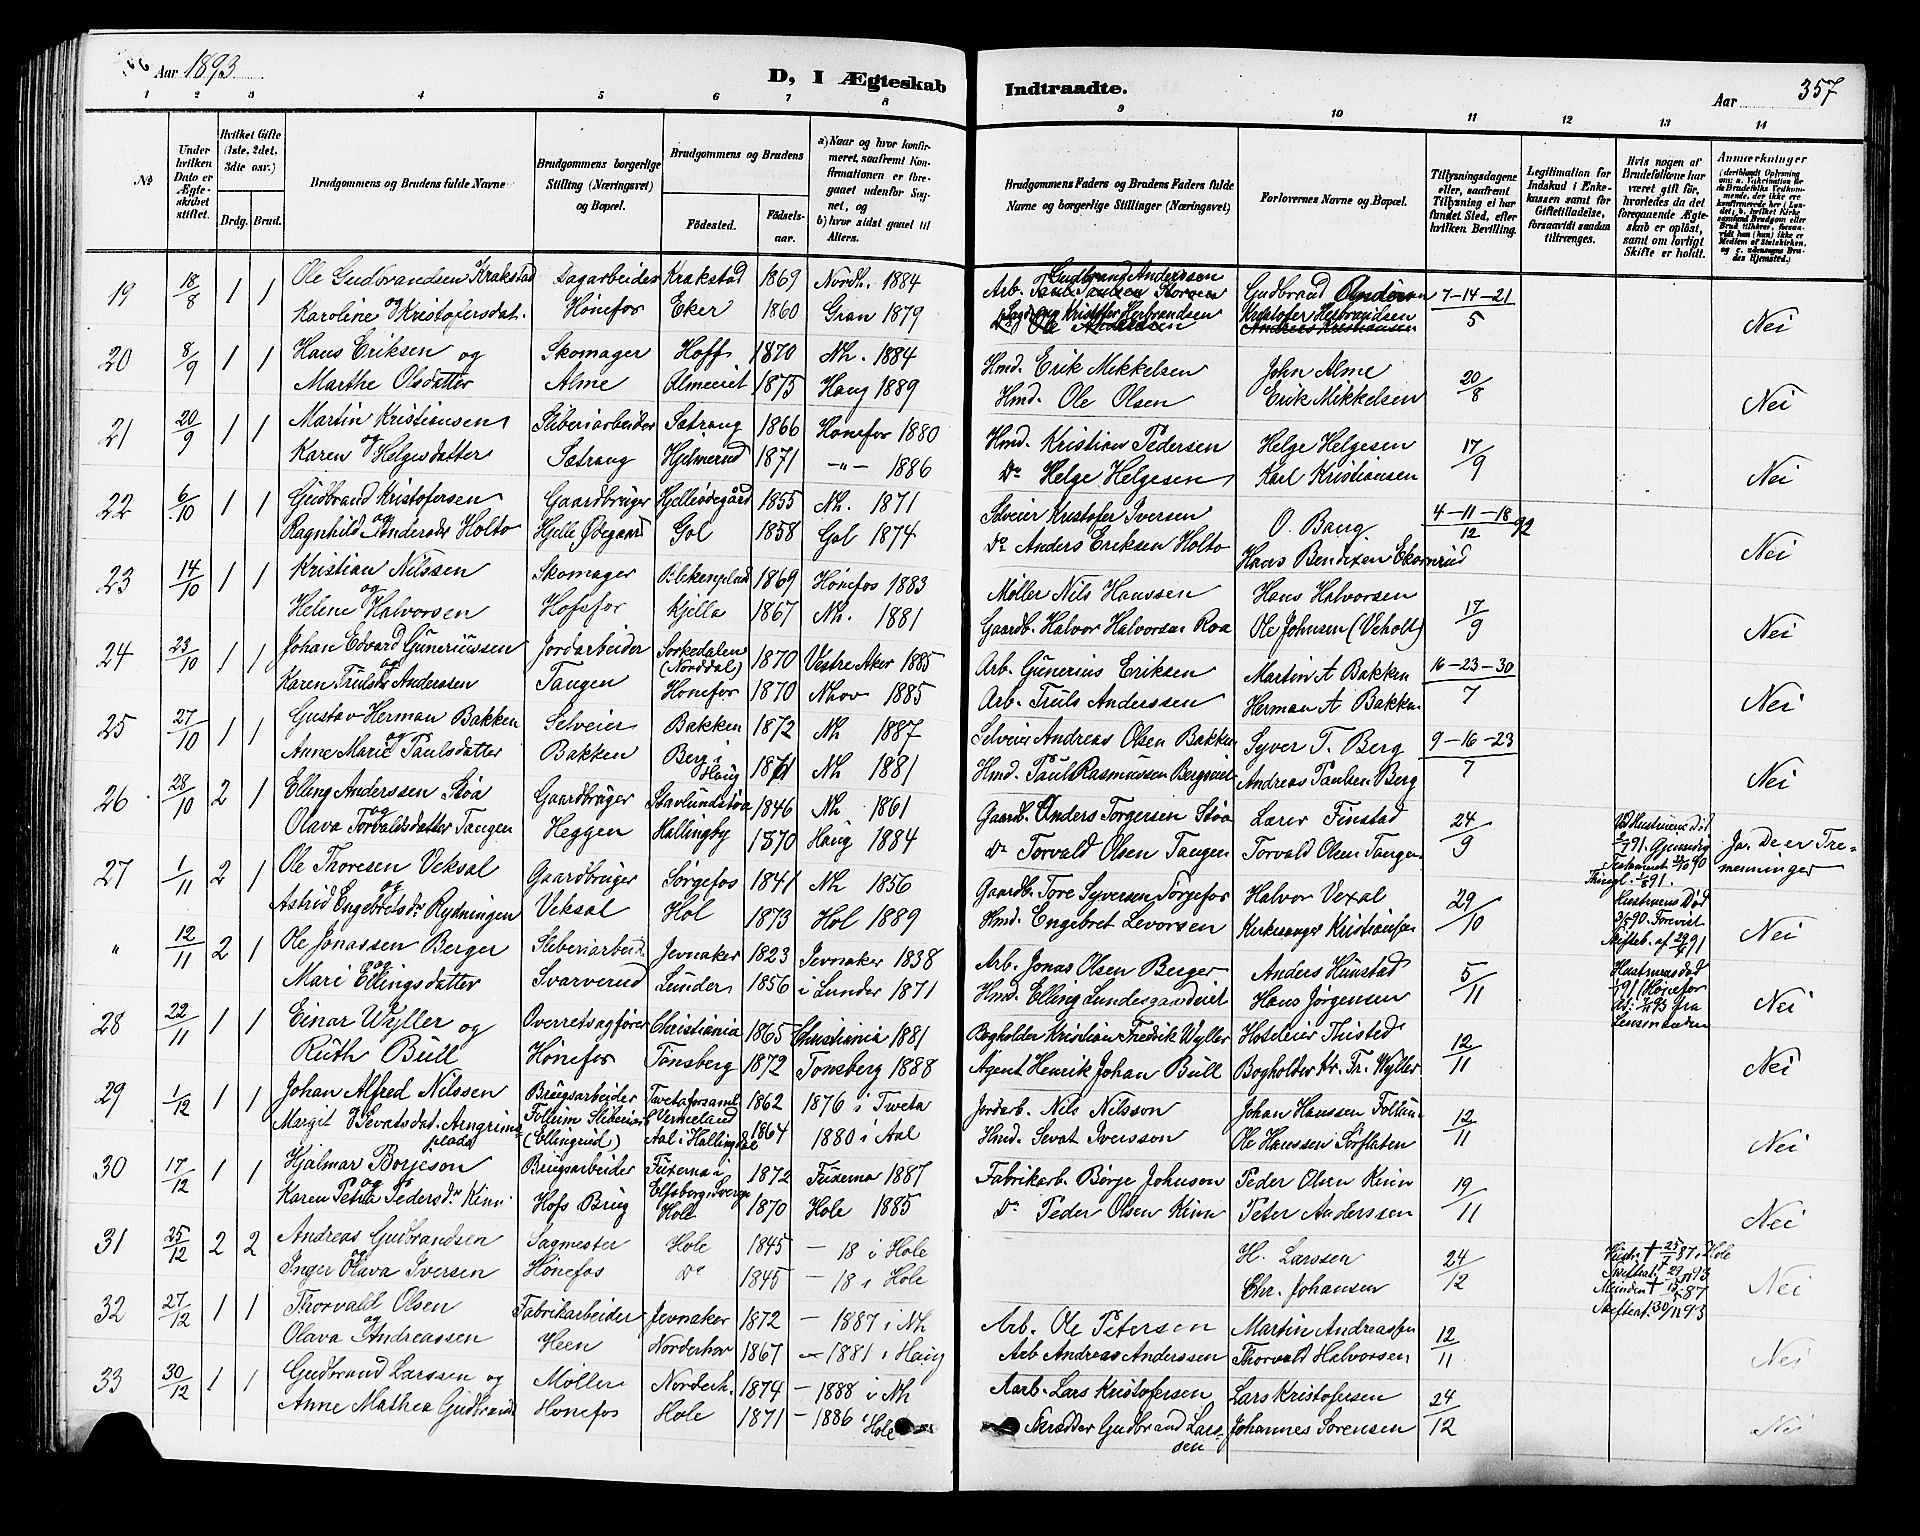 Aar 1893
D, I Ægteskab
Indtraadte.
Aar
357
1 2 3 4 5 6 7 8
9 10 11 12 13 14
No
Under hvilken Dato er Ægteskabet stiftet.
Hvilket Gifte (1ste, 2det, 3dte osv.)
Brdg. Brud.
Brudgommens og Brudens fulde Navne
Brudgommens borgerlige Stilling (Næringsvei) og Bopæl.
Brudgommens og Brudens
Fødested.
Fødselsaar.
a) Naar og hvor konfirmeret, saafremt Konfirmationen er foregaaet udenfor Sognet, og
b) hvor sidst gaaet til Alters.
Brudgommens Faders og Brudens Faders fulde Navne og borgerlige Stillinger (Næringsvei)
Forlovernes Navne og Bopæl.
Tillysningsdagene eller, saafremt Tillysning ei har fundet Sted, efter hvilken Bevilling.
Legitimation for Indskud i Enkekassen samt for Giftetilladelse, forsaavidt saadan tiltrænges.
Hvis nogen af Brudefolkene har været gift før, hvorledes da det foregaaende Ægteskab er opløst, samt om lovligt Skifte er holdt.
Anmærkninger
19 18/8 1 1 Ole Gudbrandsen Krakstad Dagarbeider Krakstad 1869 Nordh. 1884 Arb. Gudbrand Anderssen Gudbrand Andersen 7-14-21/5
og Karoline Kristofersdat. Hønefos Eker 1860 Gran 1879 Kristoffer Herbrandsen Kristofer Herbrandsen Nei
20 8/9 1 1 Hans Eriksen og Skomager Hoff 1870 Nh. 1884 Hmd. Erik Mikkelsen John Alme 20/8
Marthe Olsdatter Alme Almeeiet 1875 Haug 1889 Hmd. Ole Olsen Erik Mikkelsen Nei
21 20/9 1 1 Martin Kristiansen Sliberiarbeider Sætrang 1866 Hønefos 1880 Hmd. Kristian Pedersen Helge Helgesen 17/9
og Karen Helgesdatter Sætrang Hjelmerud 1871 -"- 1886 Do Helge Helgesen Karl Kristiansen Nei
22 6/10 1 1 Gudbrand Kristofersen Gaardbruger Hjelleødegård 1855 Nh. 1871 Selveier Kristofer Iversen O. Bang 4-11-18/12 92
og Ragnhild Andersdr Holto Hjelle Ødegaard Gol 1858 Gol 1874 Do Anders Eriksen Holto Hans Bendixen Ekornrud Nei
23 14/10 1 1 Kristian Nilssen Skomager 1869 Hønefos 1883 Møller Nils Hanssen Hans Halvorsen 17/9
og Helene Halvorsen Hofsfos Kjella 1867 Nh. 1881 Gaardb. Halvor Halvorsen Roa Ole Johnsen (Veholt) Nei
24 23/10 1 1 Johan Edvard Guneriussen Jordarbeider Sørkedalen (Norddal) 1870 Vestre Aker 1885 Arb. Gunerius Eriksen Martin A Bakken 16-23-30/7
og Karen Trulsdr Anderssen Tangen Hønefos 1870 Nhov 1885 Arb. Truls Anderssen Herman A Bakken Nei
25 27/10 1 1 Gustav Herman Bakken Selveier Bakken 1872 Nh 1887 Selveier Andreas Olsen Bakken Syver T. Berg 9-16-23/7
og Anne Marie Paulsdatter Bakken Berg i Haug 1871 Nh 1881 Hmd. Paul Rasmussen Bergseiet Andreas Paulsen Berg Nei
26 28/10 2 1 Elling Anderssen Støa Gaardbruger Stavlundstøa 1846 Nh 1861 Gaardb. Anders Torgersen Støa Lærer Finstad 24/9 Ved Hustruens Død
og Olava Torvaldsdatter Tangen Heggen Hallingby 1870 Haug 1884 Do Torvald Olsen Tangen Torvald Olsen Tangen Ja. De er Tremenninger
27 1/11 2 1 Ole Thoresen Veksal Gaardbruger Sørgefos 1841 Nh 1856 Gaardb. Tore Syversen Sørgefos Halvor Vexal 29/10 Hustruens Død
og Astrid Engebretsdr Rydningen Veksal Hol 1873 Hol 1889 Hmd. Engebret Levorsen Kirkesanger Kristiansen Nei
" 12/11 2 1 Ole Jonassen Berger Sliberiarbeid. Jevnaker 1823 Jevnaker 1838 Arb. Jonas Olsen Berger Anders Hunstad 5/11 Hustruens død
og Mari Ellingsdatter Svarverud Lunder 1856 i Lunder 1871 Hmd. Elling Lundesgaardeiet Hans Jørgensen Nei
28 22/11 1 1 Einar Wyller og Overretsagfører Christiania 1865 Christiania 1881 Bogholder Kristian Fredrik Wyller Hoteleier Thisted 12/11
Ruth Bull Hønefos Tønsberg 1872 Tønsberg 1888 Agent Henrik Johan Bull Bogholder Kr. Fr. Wyller Nei
29 1/12 1 1 Johan Alfred Nilssen Brugsarbeider Tvetaforsaml. Vermeland 1862 1876 i Tveta Jordarb. Nils Nilsson Johan Hanssen Follum 12/11
og Margit Sevatsdat. Arngrimsplads Follum Sliberi (Ellingrud) Aal i Hallingdal 1864 1880 i Aal Hmd. Sevat Iversson Ole Hanssen Sørflaten Nei
30 17/12 1 1 Hjalmar Borjeson Brugsarbeider Fuxerna i Elfsborg, Sverge 1872 Fuxerna 1887 Fabrikarb. Börje Johnson Peder Olsen Kinn 19/11
og Karen Petra Pedersdr. Kinn Hofs Brug Hole 1870 Hole 1885 Do Peder Olsen Kinn Peter Anderssen Nei
31 25/12 2 2 Andreas Gudbrandsen Sagmester Hole 1845 - 18 i Hole H. Larssen 24/12
og Inger Olava Iversen Hønefos Do 1845 - 18 i Hole Chr. Johansen Nei
32 27/12 1 1 Thorvald Olsen Fabrikarbeider Jevnaker 1872 - 1887 i Nh Arb. Ole Petersen Martin Andreassen 12/11
og Olava Andreassen Heen Norderhov 1867 - 1881 i Haug Arb Andreas Anderssen Thorvald Halvorsen Nei
33 30/12 1 1 Gudbrand Larssen og Møller Norderh. 1874 - 1888 i Nh Aarb. Lars Kristofersen Lars Kristofersen 24/12
Anne Mathea Gudbrands Hønefos Hole 1871 - 1886 i Hole Skrædder Gudbrand Larssen Johannes Sørensen Nei